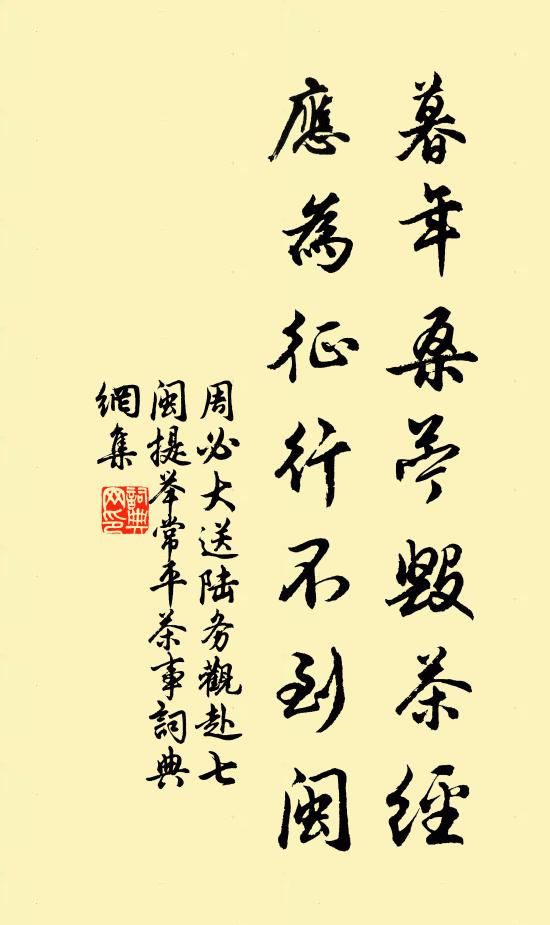 暮年桑苎毀茶經
應為征行不到閩
周必大送陆务觀赴七
閩提举常平茶事詞典
網集
詞典
网印